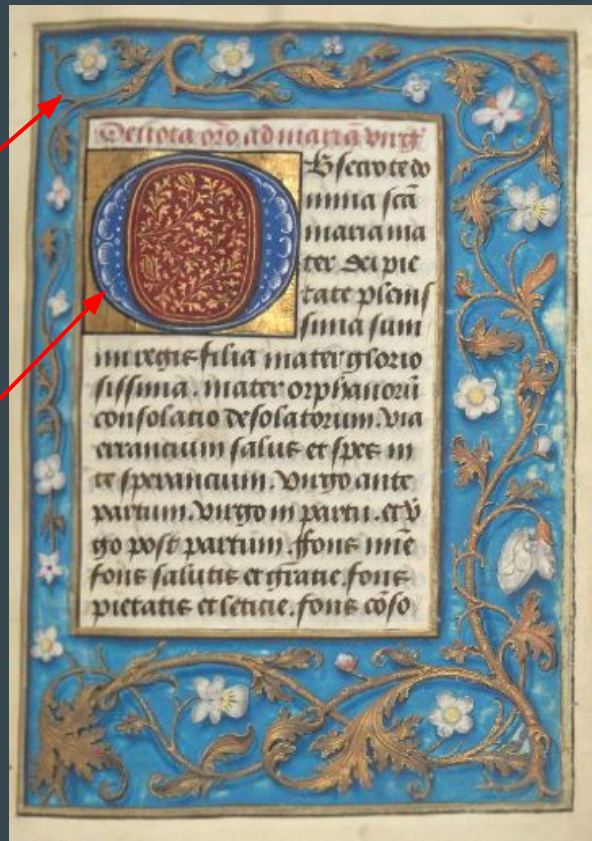 Deuota oro ad mariā virgē
OBsecro te do
mina scā
maria ma
ter dei pie
tate plenis
sima sum
mi regis filia mater glorio
sissima. mater orphanorū
consolatio desolatorum. via
errancium salus et spes in
te sperancium. virgo ante
partum. virgo in partu. et v̄
go post partum. ffons mīe
fons salutis et gratie. fons
pietatis et leticie. fons cōso